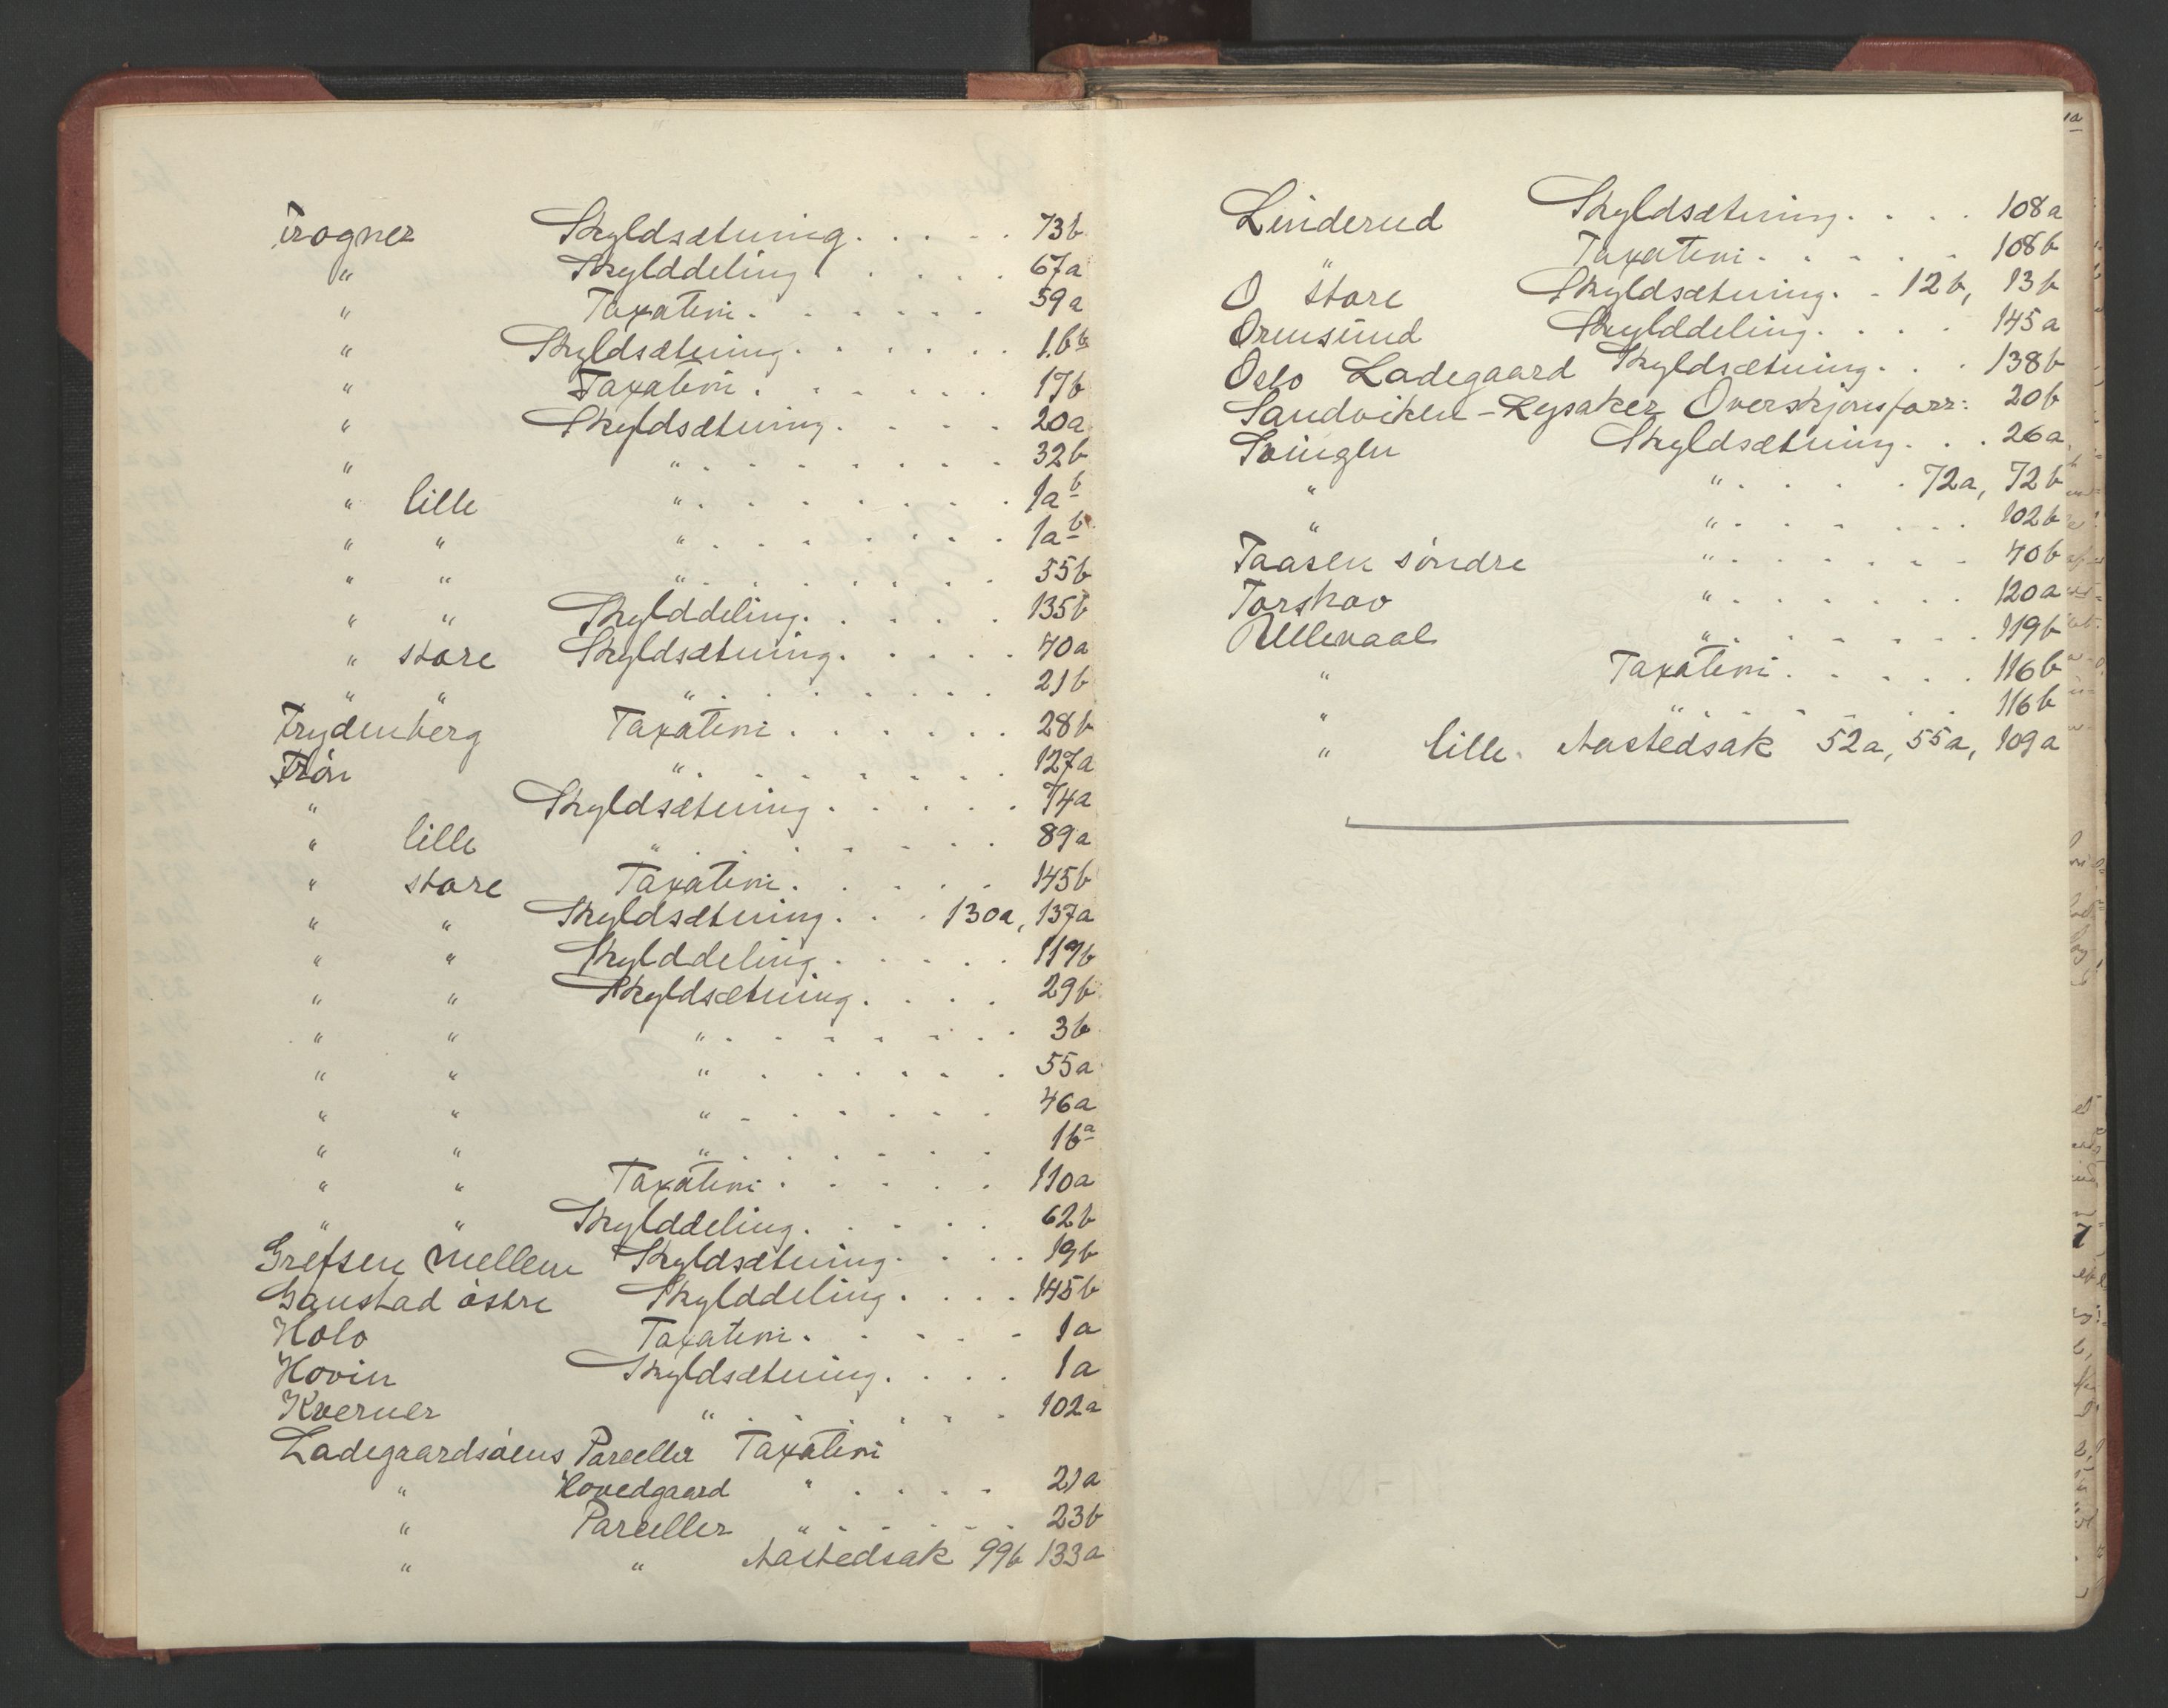 Frogner Skyldsætning. . . . . 73b
" Skylddeling . . . . 67a
" Taxation. . . . . . 59a
" Skyldsætning. . . . . . 1.b b
" Taxation. . . . . . 17b
" Skyldsætning. . . . . 20a
" " . . . . . . . . 32b
" lille " . . . . . . . . 1a b
" " " . . . . . . . . 1a b
" " " . . . . . . . . 55b
" " Skylddeling. . . . . 135b
" store Skyldsætning. . . . . 70a
" " " . . . . . . . . 21b
Frydenberg Taxation . . . . . . 28b
Frøn " . . . . . . . . 127a
" Skyldsætning . . . . . 74a
" lille " . . . . . . . . 89a
" store Taxation. . . . . 145b
" " Skyldsætning. . . 130a, 137a
" " Skylddeling . . . . . 119b
" " Skyldsætning. . . . 29b
" " " . . . . . . . . 3b
" " " . . . . . . 55a
" " " . . . . . . . 46a
" " " . . . . . . . 1b a
" " Taxation . . . . . 110a
" " Skylddeling. . . . . 62b
Grefsen mellem Skyldsætning. . . . 19b
Gaustad østre Skylddeling . . . . 145b
Holo Taxation. . . . . . 1a
Hovin Skyldsætning. . . . 1a
Kværner " . . . . . . . 102a
Ladegaardsøens Parceller Taxation
" Hovedgaard " . . . . 21a
" Parceller " . . . . . 23b
" " Aastedsak 99b 133a
Linderud Skyldsætning. . . . 108a
" Taxation. . . . . . 108b
O store Skyldsætning. . 12b, 13b
Ormsund Skylddeling. . . . 145a
Oslo Ladegaard Skyldsætning. . . 138b
Sandviken-Lysaker Overskjønsforr: 20b
Svingen Skyldsætning. . . 26a
" " . . . . . 72a, 72b
" " . . . . . . . 102b
Taasen søndre " . . . . . . . 70b
Torshov " . . . . . . . 120a
Ullevaal " . . . . . . . 119b
" Taxation. . . . . . 116b
" " . . . . . . . 116b
" lille. Aastedsak 52a, 55a, 109a